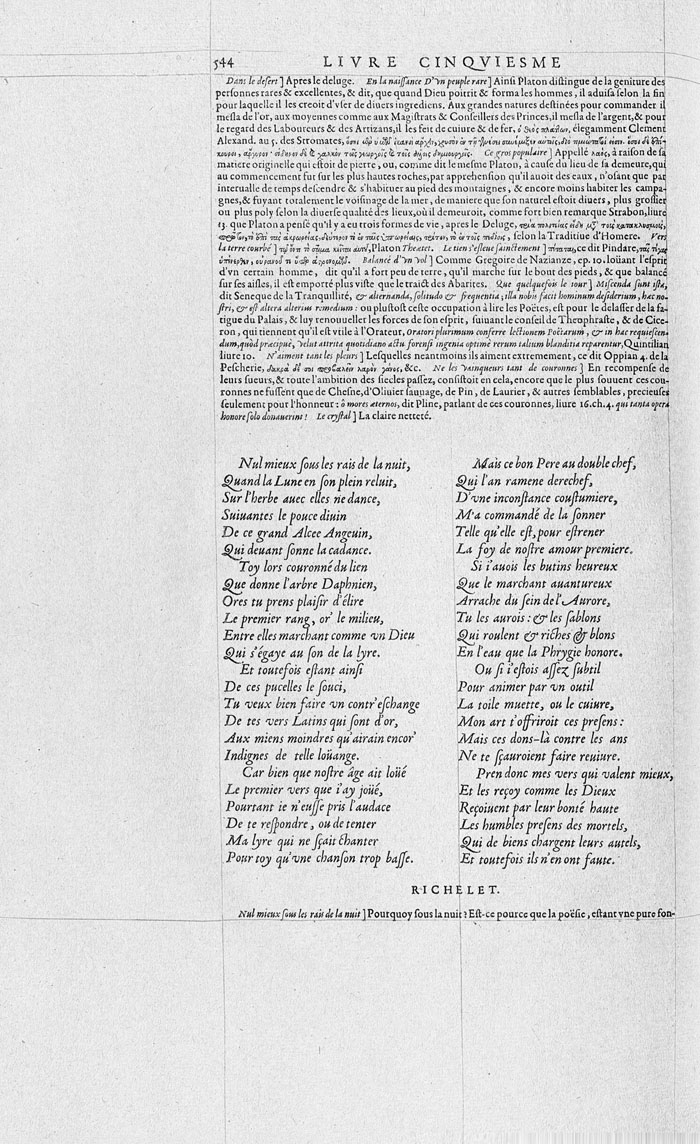 544 LIVRE CINQVIESME
Dans le desert] Apres le deluge. En la naissance D'vn peuple rare] Ainsi Platon distingue de la geniture des
personnes rares & excellentes, & dit, que quand Dieu poitrit & forma les hommes, il aduisa selon la fin
pour laquelle il les creoit d'vser de diuers ingrediens. Aux grandes natures destinées pour commander il
mesla de l'or, aux moyennes comme aux Magistrats & Conseillers des Princes, il mesla de l'argent, & pour
le regard des Laboureurs & des Artizans, il les feit de cuiure & de fer, élegamment Clement
Alexand. au 5. des Stromates,
Ce gros populaire] Appellé à raison de sa
matiere originelle qui estoit de pierre, ou, comme dit le mesme Platon, à cause du lieu de sa demeure, qui
au commencement fut sur les plus hautes roches, par apprehension qu'il auoit des eaux, n'osant que par
interualle de temps descendre & s'habituer au pied des montaignes, & encore moins habiter les campa-
gnes, & fuyant totalement le voisinage de la mer, de maniere que son naturel estoit diuers, plus grossier
ou plus poly selon la diuerse qualité des lieux, où il demeuroit, comme fort bien remarque Strabon, liure
13. que Platon a pensé qu'il y a eu trois formes de vie, apres le Deluge,
Vers
la terre courbé] Platon Theætet. Le tien s'esleue sainctement] ce dit Pindare,
Balancé d'vn vol] Comme Gregoire de Nazianze, ep. 10. loüant l'esprit
d'vn certain homme, dit qu'il a fort peu de terre, qu'il marche sur le bout des pieds, & que balancé
sur ses aisles, il est emporté plus viste que le traict des Abarites. Que quelquefois le iour] Miscenda sunt ista,
dit Seneque de la Tranquilité, & alternanda, solitudo & frequentia; illa nobis facit hominum desiderium, hæc no-
stri, & est altera alterius remedium: ou plustost ceste occupation à lire les Poëtes, est pour le delasser de la fa-
tigue du Palais, & luy renouueller les forces de son esprit, suiuant le conseil de Theophraste, & de Cice-
ron, qui tiennent qu'il est vtile à l'Orateur, Oratori plurimum conferre lectionem Poëtarum, & in hac requiescen-
dum, quòd præcipuè, velut attrita quotidiano actu forensi ingenia optimè rerum talium blanditia reparentur, Quintilian
liure 10. N'aiment tant les pleurs] Lesquelles neantmoins ils aiment extremement, ce dit Oppian 4. de la
Pescherie, &c. Ne les vainqueurs tant de couronnes] En recompense de
leurs sueurs, & toute l'ambition des siecles passez, consistoit en cela, encore que le plus souuent ces cou-
ronnes ne fussent que de Chesne, d'Oliuier sauuage, de Pin, de Laurier, & autres semblables, precieuses
seulement pour l'honneur: ô mores æternos, dit Pline, parlant de ces couronnes, liure 16. ch. 4. qui tanta opera
honore solo donauerint! Le crystal] La claire netteté.
Nul mieux sous les rais de la nuit,
Quand la Lune en son plein reluit,
Sur l'herbe auec elles ne dance,
Suiuantes le pouce diuin
De ce grand Alcee Angeuin,
Qui deuant sonne la cadance.
Toy lors couronné du lien
Que donne l'arbre Daphnien,
Ores tu prens plaisir d'élire
Le premier rang, or' le milieu,
Entre elles marchant comme vn Dieu
Qui s'égaye au son de la lyre.
Et toutefois estant ainsi
De ces pucelles le souci,
Tu veux bien faire vn contr'eschange
De tes vers Latins qui sont d'or,
Aux miens moindres qu'airain encor'
Indignes de telle loüange.
Car bien que nostre âge ait loüé
Le premier vers que i'ay joüé,
Pourtant ie n'eusse pris l'audace
De te respondre, ou de tenter
Ma lyre qui ne sçait chanter
Pour toy qu'vne chanson trop basse.
Mais ce bon Pere au double chef,
Qui l'an ramene derechef,
D'vne inconstance coustumiere,
M'a commandé de la sonner
Telle qu'elle est, pour estrener
La foy de nostre amour premiere.
Si i'auois les butins heureux
Que le marchant auantureux
Arrache du sein de l'Aurore,
Tu les aurois: & les sablons
Qui roulent & riches & blons
En l'eau que la Phrygie honore.
Ou si i'estois assez subtil
Pour animer par vn outil
La toile muette, ou le cuiure,
Mon art t'offriroit ces presens:
Mais ces dons-là contre les ans
Ne te sçauroient faire reuiure.
Pren donc mes vers qui valent mieux,
Et les reçoy comme les Dieux
Reçoiuent par leur bonté haute
Les humbles presens des mortels,
Qui de biens chargent leurs autels,
Et toutefois ils n'en ont faute.
RICHELET.
Nul mieux sous les rais de la nuit] Pourquoy sous la nuit? Est-ce pource que la poësie, estant vne pure fon-